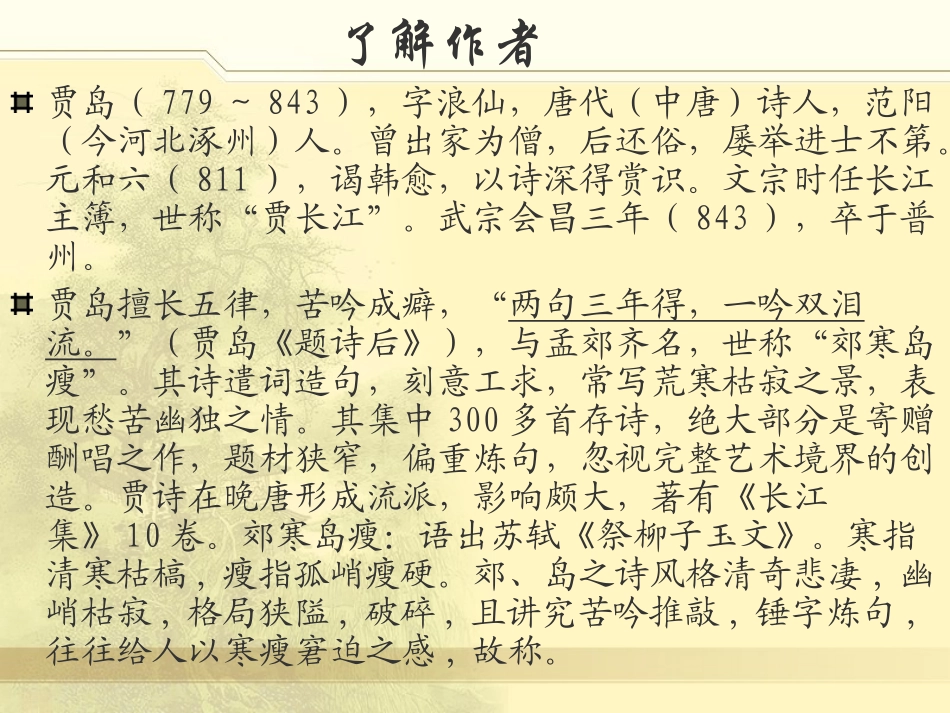 了解作者
贾岛（779～843），字浪仙，唐代（中唐）诗人，范阳
（今河北涿州）人。曾出家为僧，后还俗，屡举进士不第。
元和六（811），谒韩愈，以诗深得赏识。文宗时任长江
主簿，世称“贾长江”。武宗会昌三年（843），卒于普
州。
贾岛擅长五律，苦吟成癖，“两句三年得，一吟双泪
流。”（贾岛《题诗后》），与孟郊齐名，世称“郊寒岛
瘦”。其诗遣词造句，刻意工求，常写荒寒枯寂之景，表
现愁苦幽独之情。其集中300多首存诗，绝大部分是寄赠
酬唱之作，题材狭窄，偏重炼句，忽视完整艺术境界的创
造。贾诗在晚唐形成流派，影响颇大，著有《长江
集》10卷。郊寒岛瘦：语出苏轼《祭柳子玉文》。寒指
清寒枯槁,瘦指孤峭瘦硬。郊、岛之诗风格清奇悲凄,幽
峭枯寂,格局狭隘,破碎,且讲究苦吟推敲,锤字炼句,
往往给人以寒瘦窘迫之感,故称。